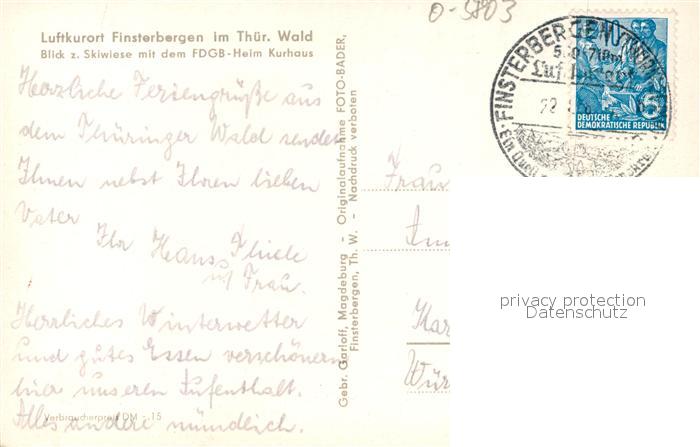 Luftkurort Finsterbergen im Thür. Wald
Blick z. Skiwiese mit dem FDGB-Heim Kurhaus
Herzliche Feriengrüße aus
dem Thüringer Wald sendet
Ihnen nebst Ihren lieben
Vater
Ihr Hans Thiele
u/ Frau.
Herrliches Winterwetter
und gutes Essen verschönern
hier unseren Aufenthalt.
Alles andere mündlich.
Verbraucherpreis DM -.15
Gebr. Garloff, Magdeburg - Originalaufnahme FOTO-BADER,
Finsterbergen, Th. W. - Nachdruck verboten
0-5703
FINSTERBERGEN
22
DEUTSCHE
DEMOKRATISCHE REPUBLIK
5
Frau
Kar
Wür
privacy protection
Datenschutz